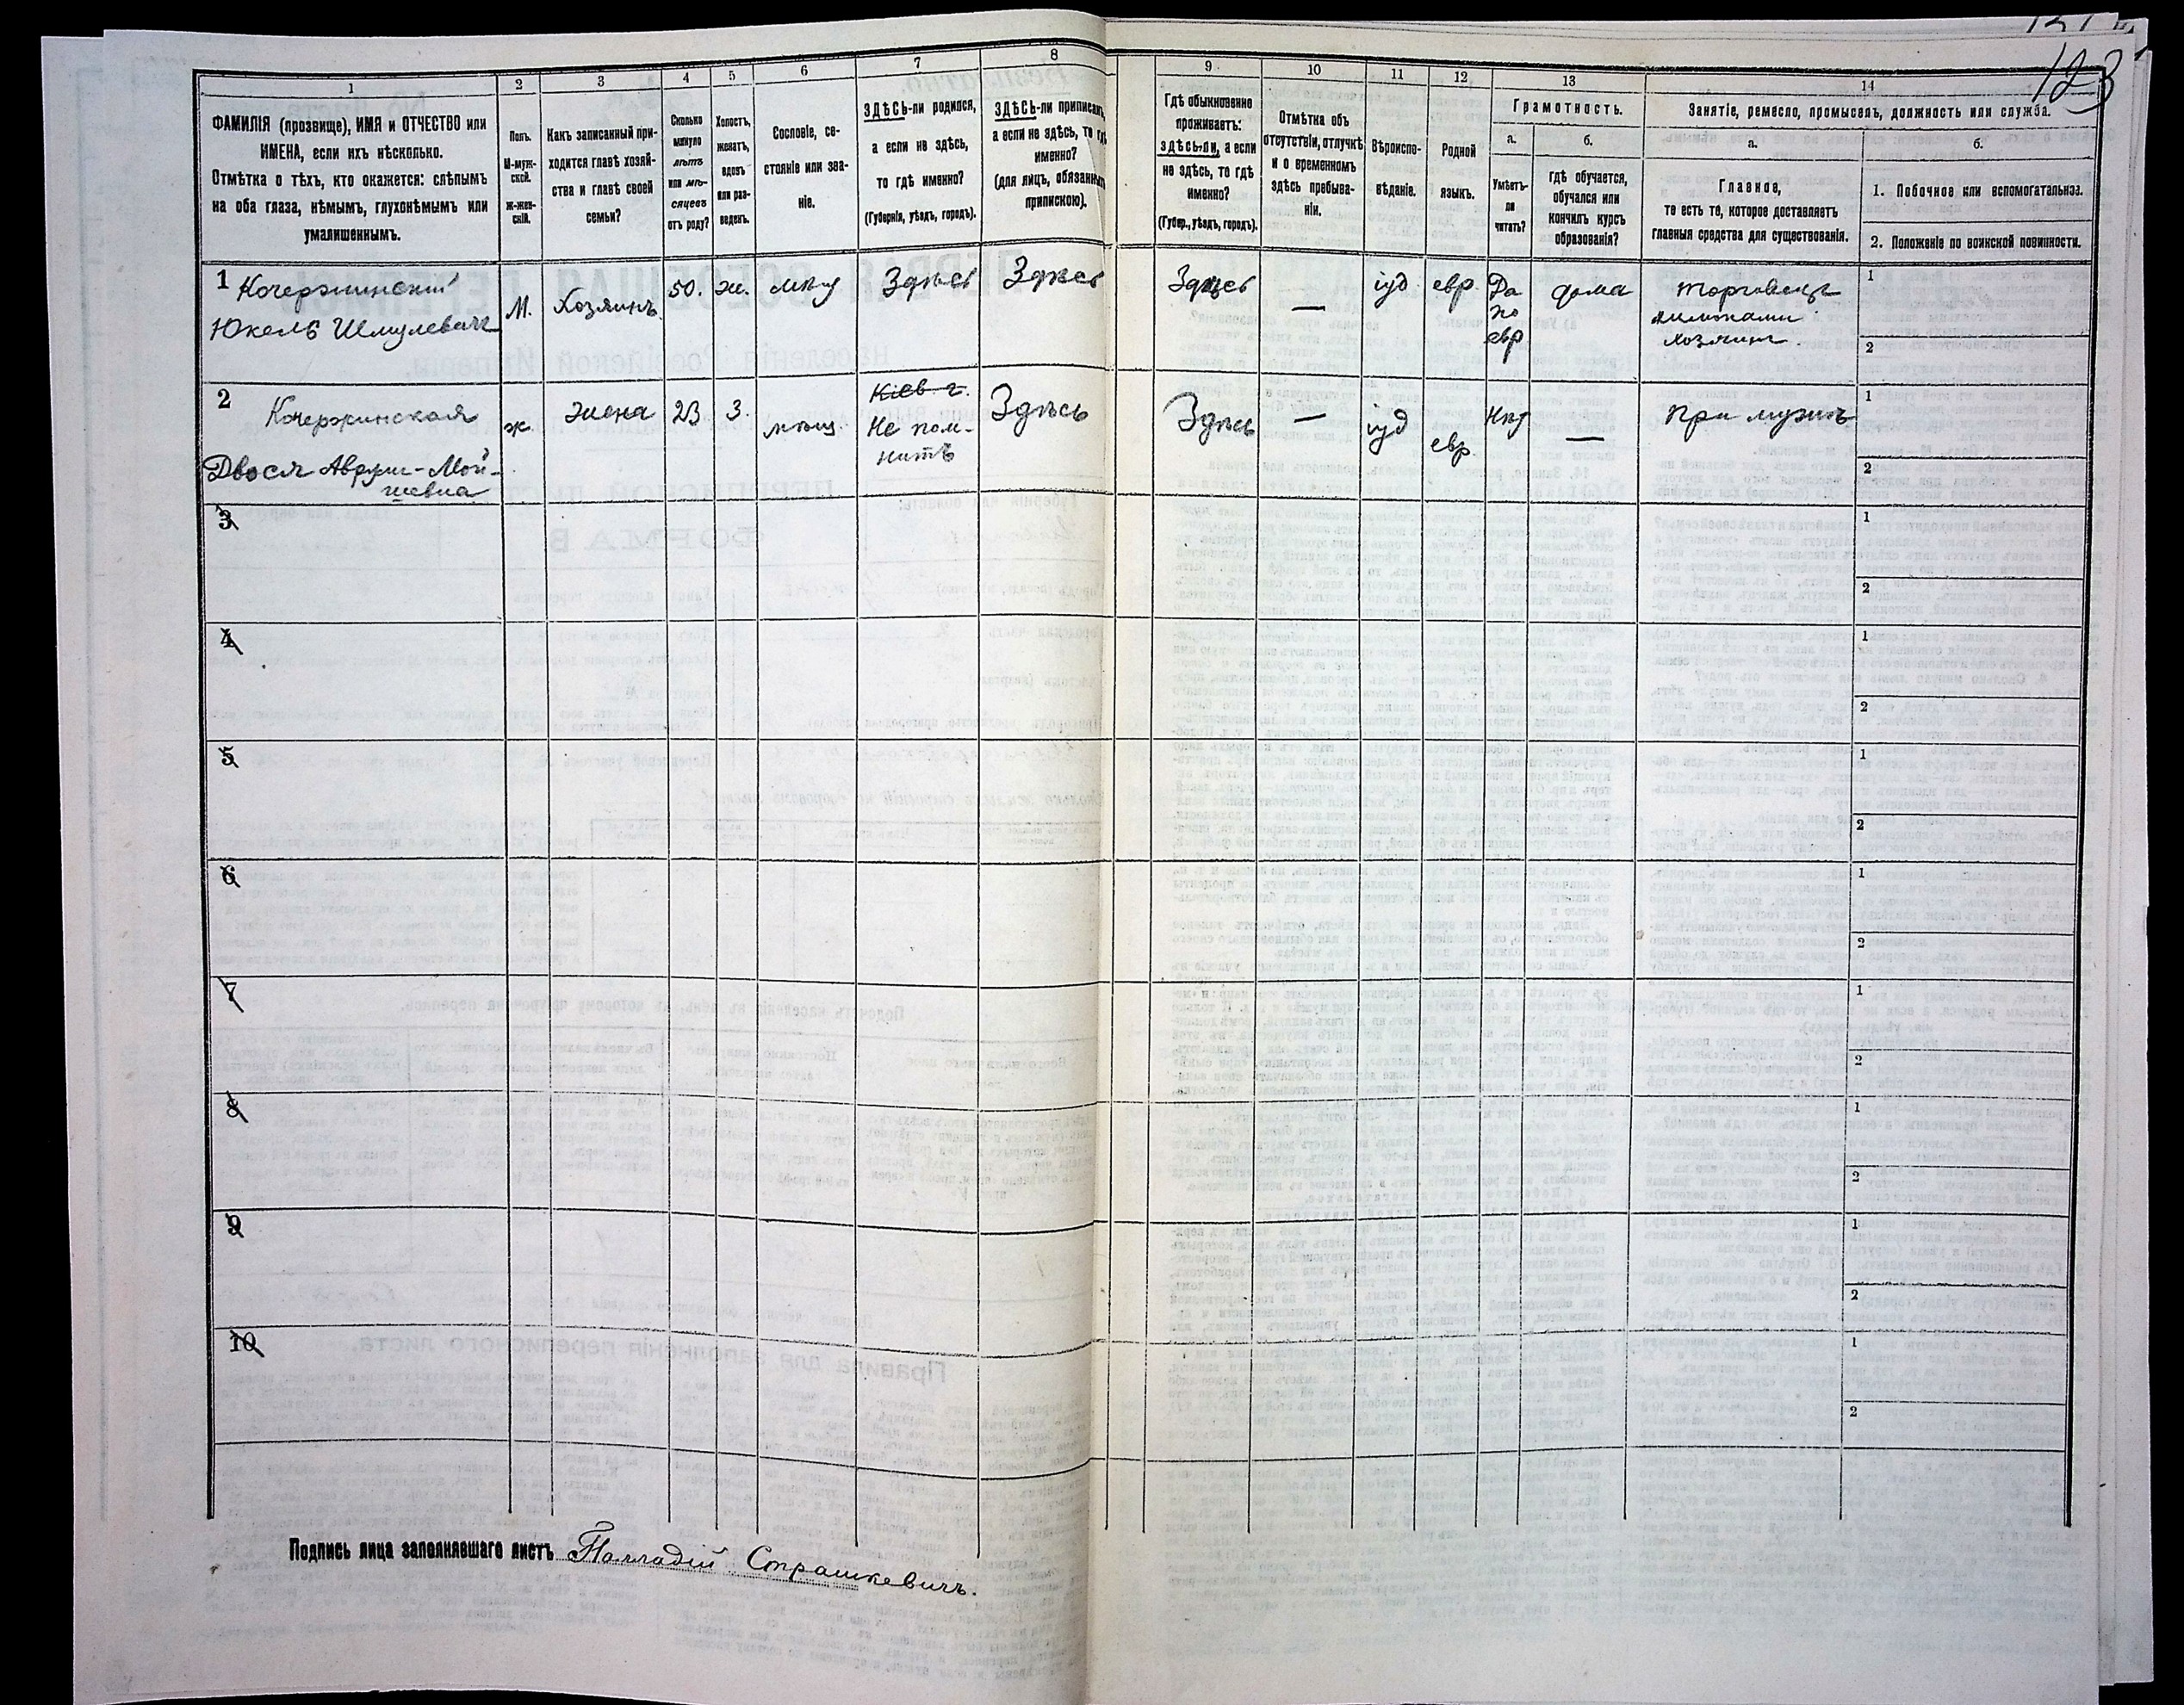 123
1 2 3 4 5 6 7 8 9 10 11 12 13 14
ФАМИЛІЯ (прозвище), ИМЯ и ОТЧЕСТВО или
ИМЕНА, если ихъ нѣсколько.
Отмѣтка о тѣхъ, кто окажется: слѣпымъ
на оба глаза, нѣмымъ, глухонѣмымъ или
умалишеннымъ.
Полъ.
М-муж-
ской.
ж-жен-
скій.
Какъ записанный при-
ходится главѣ хозяй-
ства и главѣ своей
семьи?
Сколько
минуло
лѣтъ
или мѣ-
сяцевъ
отъ роду?
Холостъ,
женатъ,
вдовъ
или раз-
веденъ.
Сословіе, со-
стояніе или зва-
ніе.
ЗДѢСЬ-ли родился,
а если не здѣсь,
то гдѣ именно?
(Губернія, уѣздъ, городъ).
ЗДѢСЬ-ли приписанъ,
а если не здѣсь, то гдѣ
именно?
(для лицъ, обязанныхъ
припискою).
Гдѣ обыкновенно
проживаетъ:
здѣсь-ли, а если
не здѣсь, то гдѣ
именно?
(Губер., уѣздъ, городъ).
Отмѣтка объ
отсутствіи, отлучкѣ
и о временномъ
здѣсь пребыва-
ніи.
Вѣроиспо-
вѣданіе.
Родной
языкъ.
Грамотность.
а.
Умѣетъ-
ли
читать?
б.
гдѣ обучается,
обучался или
кончилъ курсъ
образованія?
Занятіе, ремесло, промыселъ, должность или служба.
а.
Главное,
то есть то, которое доставляетъ
главныя средства для существованія.
б.
1. Побочное или вспомогательное.
2. Положеніе по воинской повинности.
1 Кочержинскій
Юкель Шмулевичъ
М.
Хозяинъ
50.
ж.
мѣщ
Здѣсь
Здѣсь
Здѣсь
—
іуд
евр
Да
по
евр
дома
торговецъ
хозяинъ.
1
2
2 Кочержинская
Двося Аврум-Мой-
шевна
ж.
жена
23
з.
мѣщ.
Кіев г.
Не пом-
нитъ
Здѣсь
Здѣсь
—
іуд
евр.
Нѣт
—
при мужѣ
1
2
3
1
2
4
1
2
5
1
2
6
1
2
7
1
2
8
1
2
9
1
2
10
1
2
Подпись лица заполнявшаго листъ Палладій Страшкевичъ.